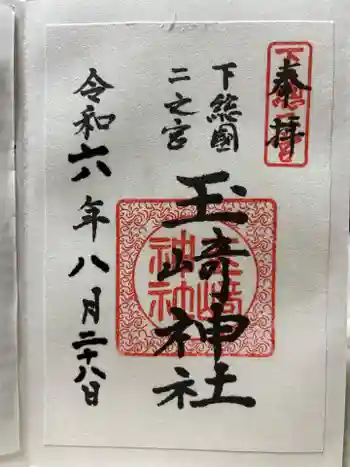 奉拝
下総國
二之宮
玉﨑神社
令和六年八月二十八日